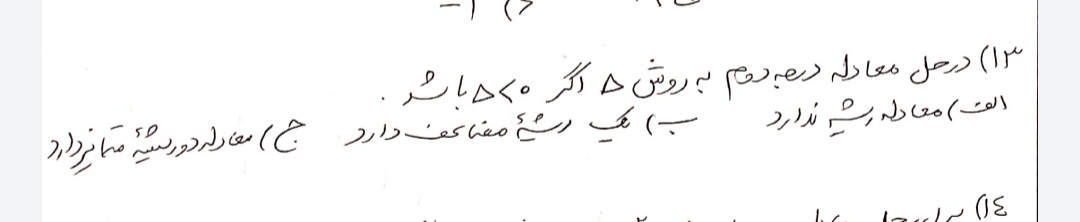 ۱۳) در حل معادله درجه دوم به روش Δ اگر Δ<۰ باشد .
الف) معادله ریشه ندارد ب) یک ریشهٔ مضاعف دارد ج) معادله دو ریشهٔ متمایز دارد
۱٤)